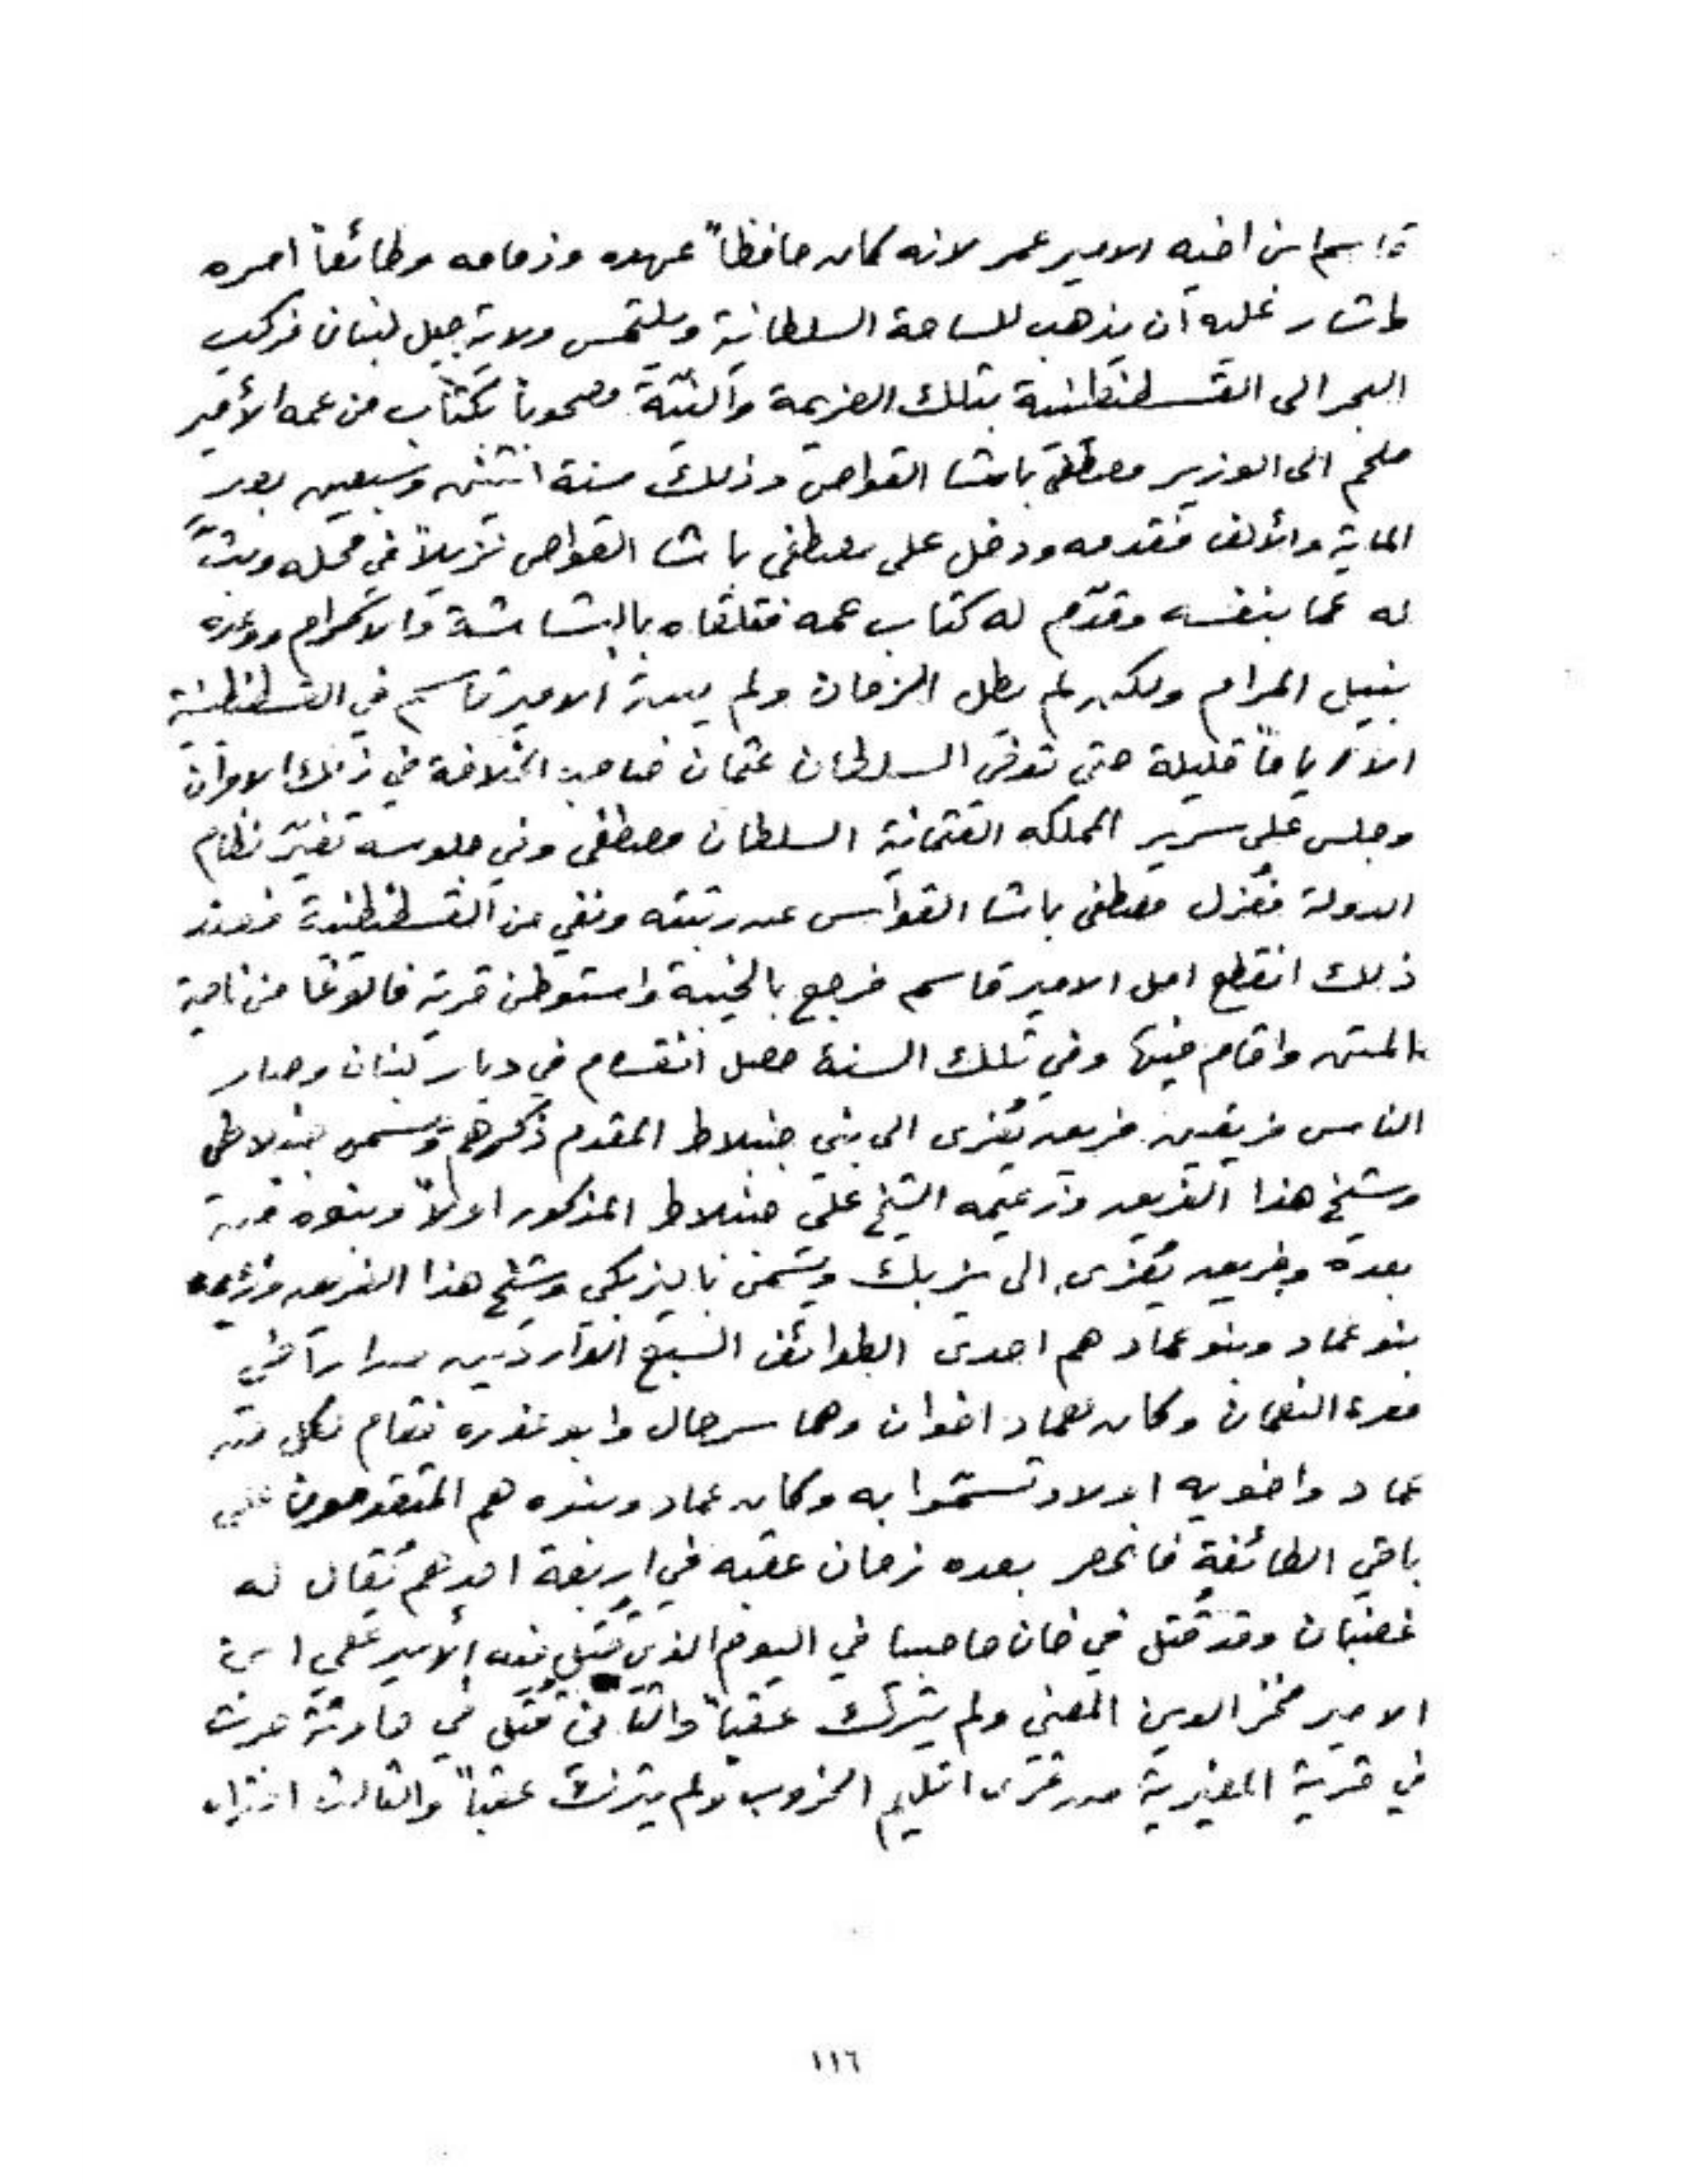 قاسم ابن اخيه الامير عمر لانه كان حافظاً عهده وذمامه وطائعاً امره
واشار عليه ان يذهب للساحة السلطانية ويلتمس ولاية جبل لبنان فركب
البحر الى القسطنطينية بتلك العزيمة والنيّة مصحوباً بكتاب من عمه الأمير
ملحم الى الوزير مصطفى باشا القواص وذلك سنة اثنتين وسبعين بعد
الماية والألف فقدمه ودخل على مصطفى باشا القواص نزيلاً في محله وبثّ
له عما بنفسه وقدّم له كتاب عمه فتلقاه بالبشاشة والاكرام ووعده
بنيل المرام ولكن لم يطل الزمان ولم يبث الامير قاسم في القسطنطينية
الا اياماً قليلة حتى توفى السلطان عثمان صاحب الخلافة في ذلك الاوان
وجلس على سرير المملكه العثمانية السلطان مصطفى وفي جلوسه تغيّر نظام
الدولة فعُزل مصطفى باشا القواس عن رتبته ونفي من القسطنطينية فعند
ذلك انقطع امل الامير قاسم فرجع بالخيبة واستوطن قرية فالوغا من ناحية
المتن واقام فيها وفي تلك السنة حصل انقسام في ديار لبنان وصار
الناس فريقين فريق يُعزى الى بني جنبلاط المقدم ذكرهم ويسمى جنبلاطي
وشيخ هذا الفريق وزعيمه الشيخ علي جنبلاط المذكور اولاً وبنوه من
بعده وفريق يُعزى الى يزبك ويسمى باليزبكي وشيخ هذا الفريق وزعيمه
بنو عماد وبنو عماد هم احدى الطوائف السبع الواردين من اراضي
معرة النعمان وكان لعماد اخوان وهما سرحال وابو عذره فقام لكل من
عماد واخويه اولاد تسمّوا به وكان عماد وبنوه هم المتقدمون على
باقي الطائفة فانحصر بعده زمان عقبه في اربعة احدهم يُقال له
غضبان وقد قُتل في خان حاصبيا في اليوم الذي قُتل فيه الأمير علي ابن
الامير فخر الدين المعني ولم يترك عقباً والثاني قُتل في حادثة جرت
في قرية المغيرية من قرى اقليم الخروب ولم يترك عقباً والثالث
١١٦